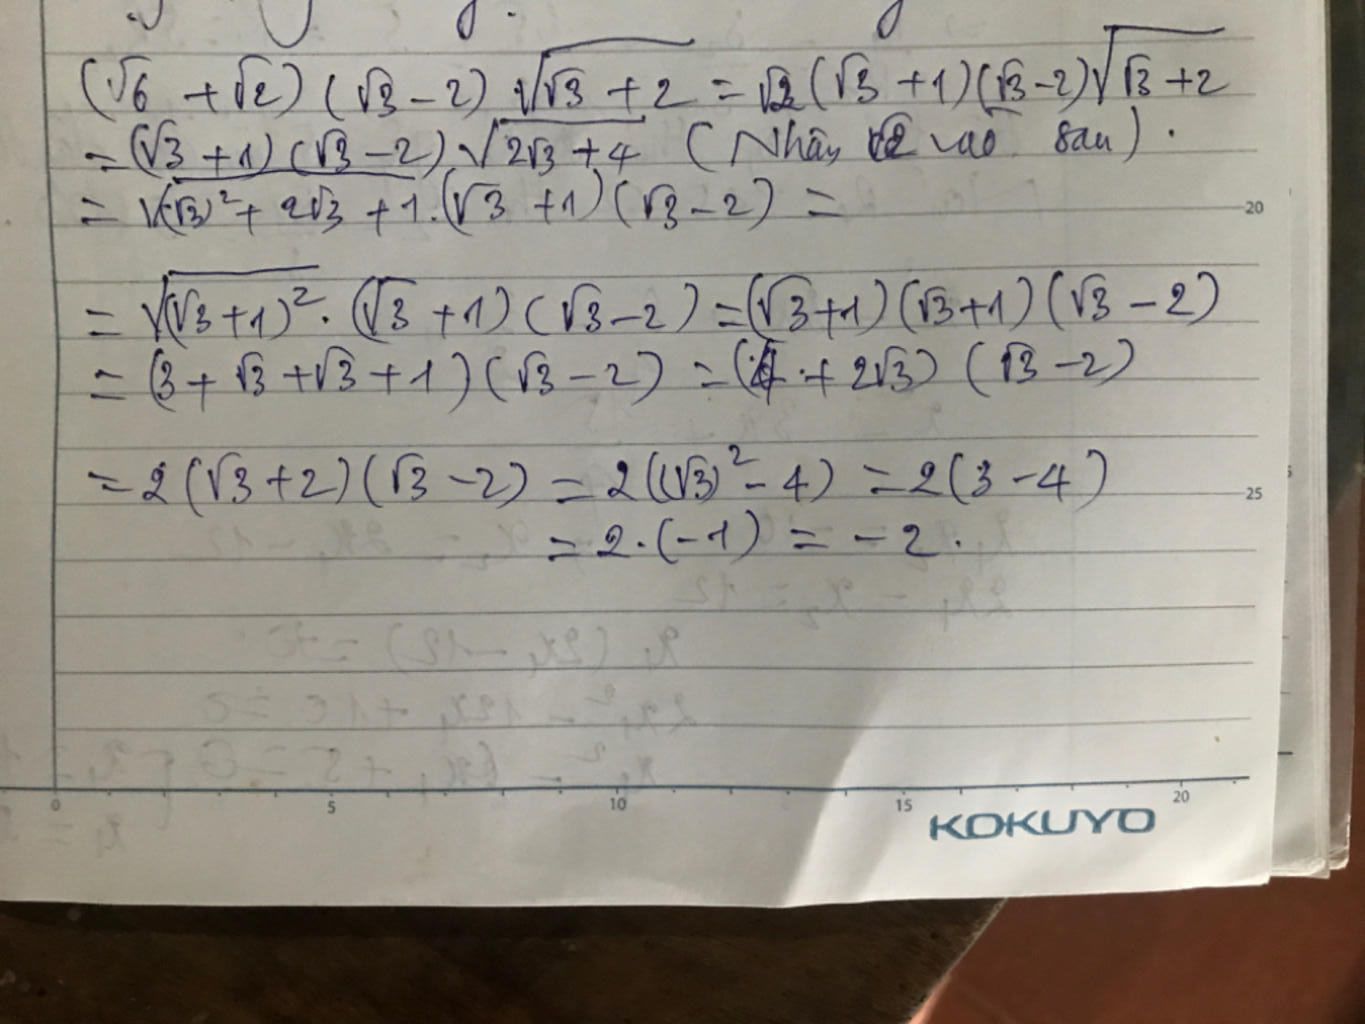 (√6 + √2)(√3 - 2) √(√3 + 2) = √2(√3 + 1)(√3 - 2)√(√3 + 2)
= (√3 + 1)(√3 - 2)√(2√3 + 4) (Nhân √2 vào sau).
= √((√3)² + 2√3 + 1).(√3 + 1)(√3 - 2) =
20
= √((√3 + 1)²).(√3 + 1)(√3 - 2) = (√3 + 1)(√3 + 1)(√3 - 2)
= (3 + √3 + √3 + 1)(√3 - 2) = (4 + 2√3)(√3 - 2)
= 2(√3 + 2)(√3 - 2) = 2((√3)² - 4) = 2(3 - 4)
25
= 2.(-1) = -2.
0 5 10 15 20
KOKUYO